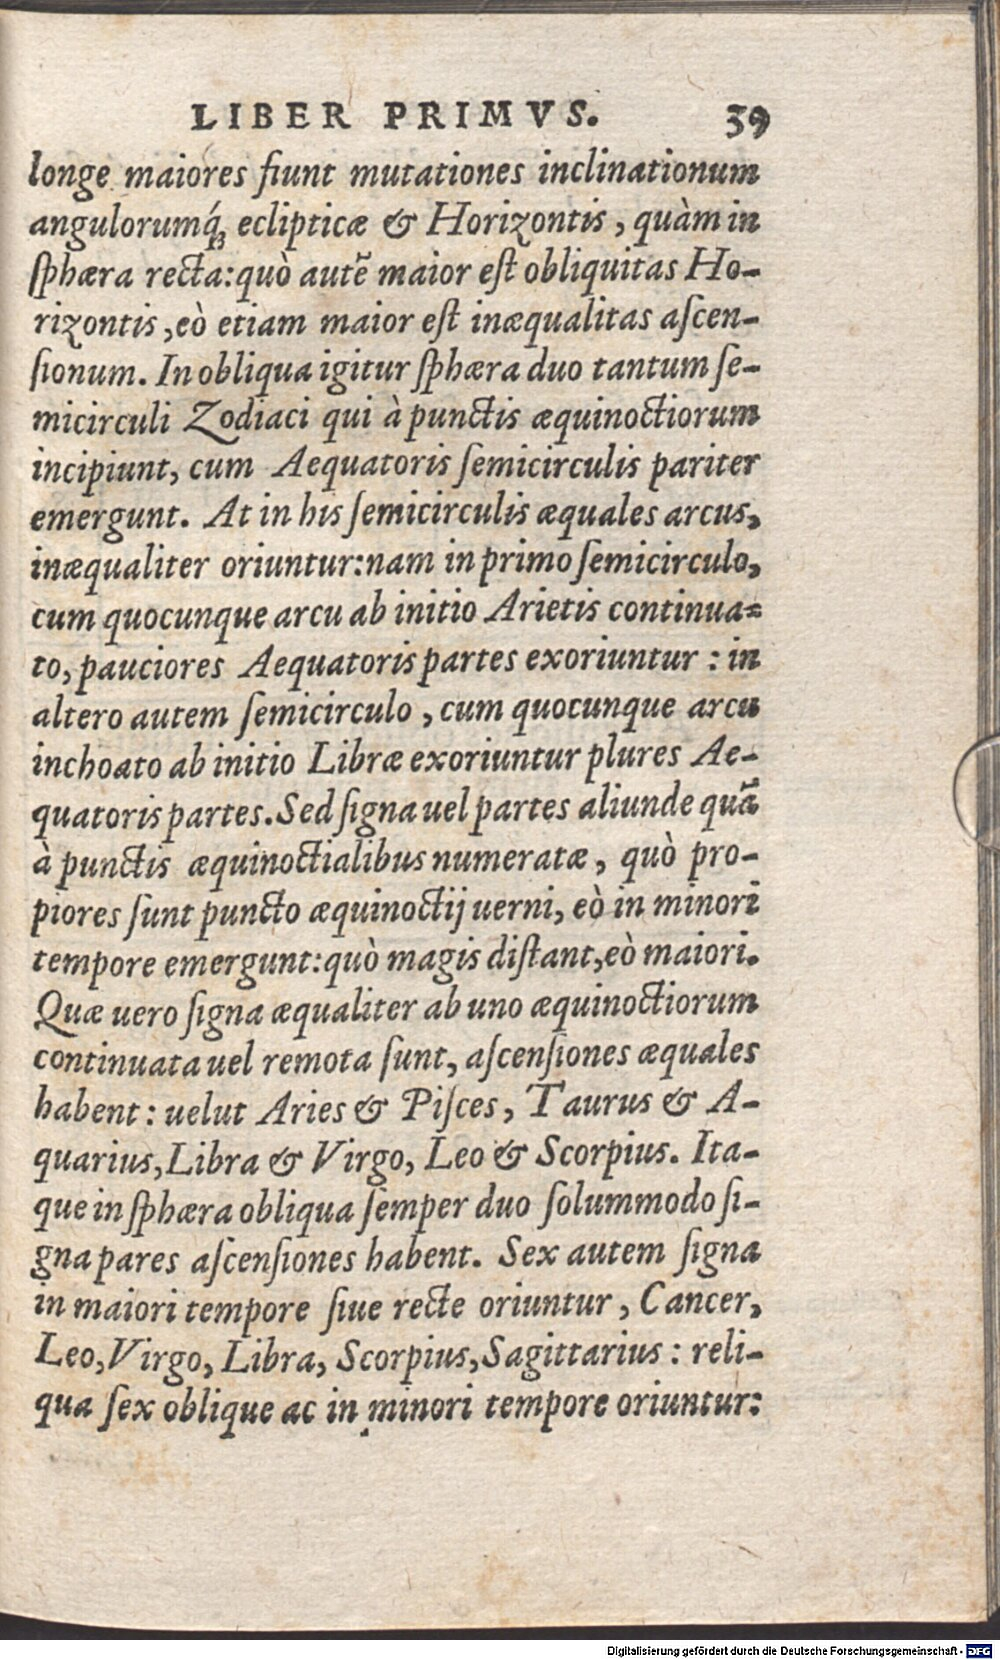 LIBER PRIMVS. 39
longe maiores fiunt mutationes inclinationum
angulorumq́ꝫ eclipticæ & Horizontis, quàm in
ſphæra recta: quò autē maior eſt obliquitas Ho-
rizontis, eò etiam maior eſt inæqualitas aſcen-
ſionum. In obliqua igitur ſphæra duo tantum ſe-
micirculi Zodiaci qui à punctis æquinoctiorum
incipiunt, cum Aequatoris ſemicirculis pariter
emergunt. At in his ſemicirculis æquales arcus,
inæqualiter oriuntur: nam in primo ſemicirculo,
cum quocunque arcu ab initio Arietis continua-
to, pauciores Aequatoris partes exoriuntur: in
altero autem ſemicirculo, cum quocunque arcu
inchoato ab initio Libræ exoriuntur plures Ae-
quatoris partes. Sed ſigna uel partes aliunde quã
à punctis æquinoctialibus numeratæ, quò pro-
piores ſunt puncto æquinoctij uerni, eò in minori
tempore emergunt: quò magis diſtant, eò maiori.
Quæ uero ſigna æqualiter ab uno æquinoctiorum
continuata uel remota ſunt, aſcenſiones æquales
habent: uelut Aries & Piſces, Taurus & A-
quarius, Libra & Virgo, Leo & Scorpius. Ita-
que in ſphæra obliqua ſemper duo ſolummodo ſi-
gna pares aſcenſiones habent. Sex autem ſigna
in maiori tempore ſiue recte oriuntur, Cancer,
Leo, Virgo, Libra, Scorpius, Sagittarius: reli-
qua ſex oblique ac in minori tempore oriuntur:
Digitalisierung gefördert durch die Deutsche Forschungsgemeinschaft - DFG